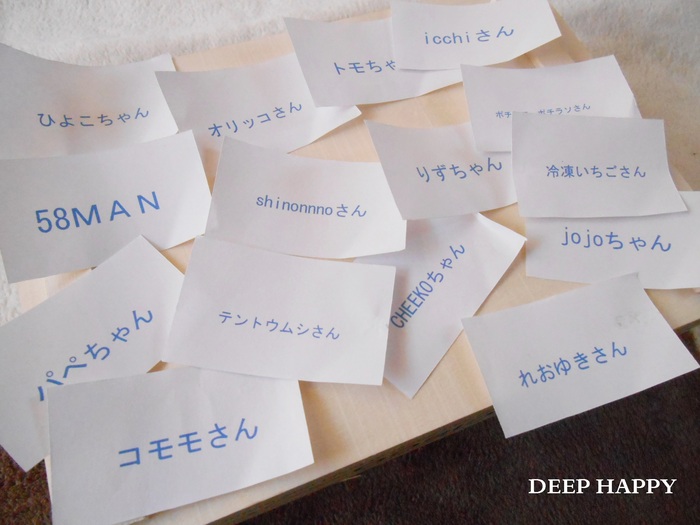 icchiさん
トモちゃ
ひよこちゃん
オリッコさん
ポチラソさん
りずちゃん
冷凍いちごさん
58MAN
shinonnnoさん
jojoちゃん
CHEEKOちゃん
パペちゃん
テントウムシさん
れおゆきさん
コモモさん
DEEP HAPPY